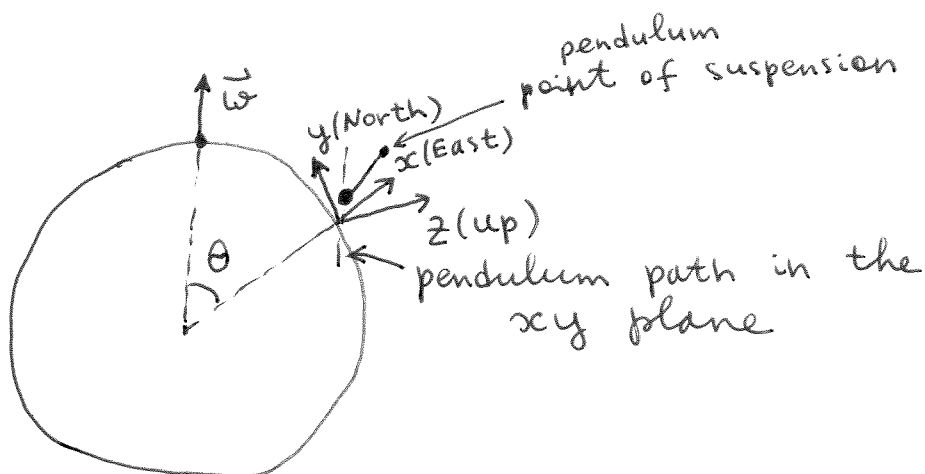 pendulum
point of suspension
ω⃗
y(North)
x(East)
z(up)
θ
pendulum path in the
xy plane